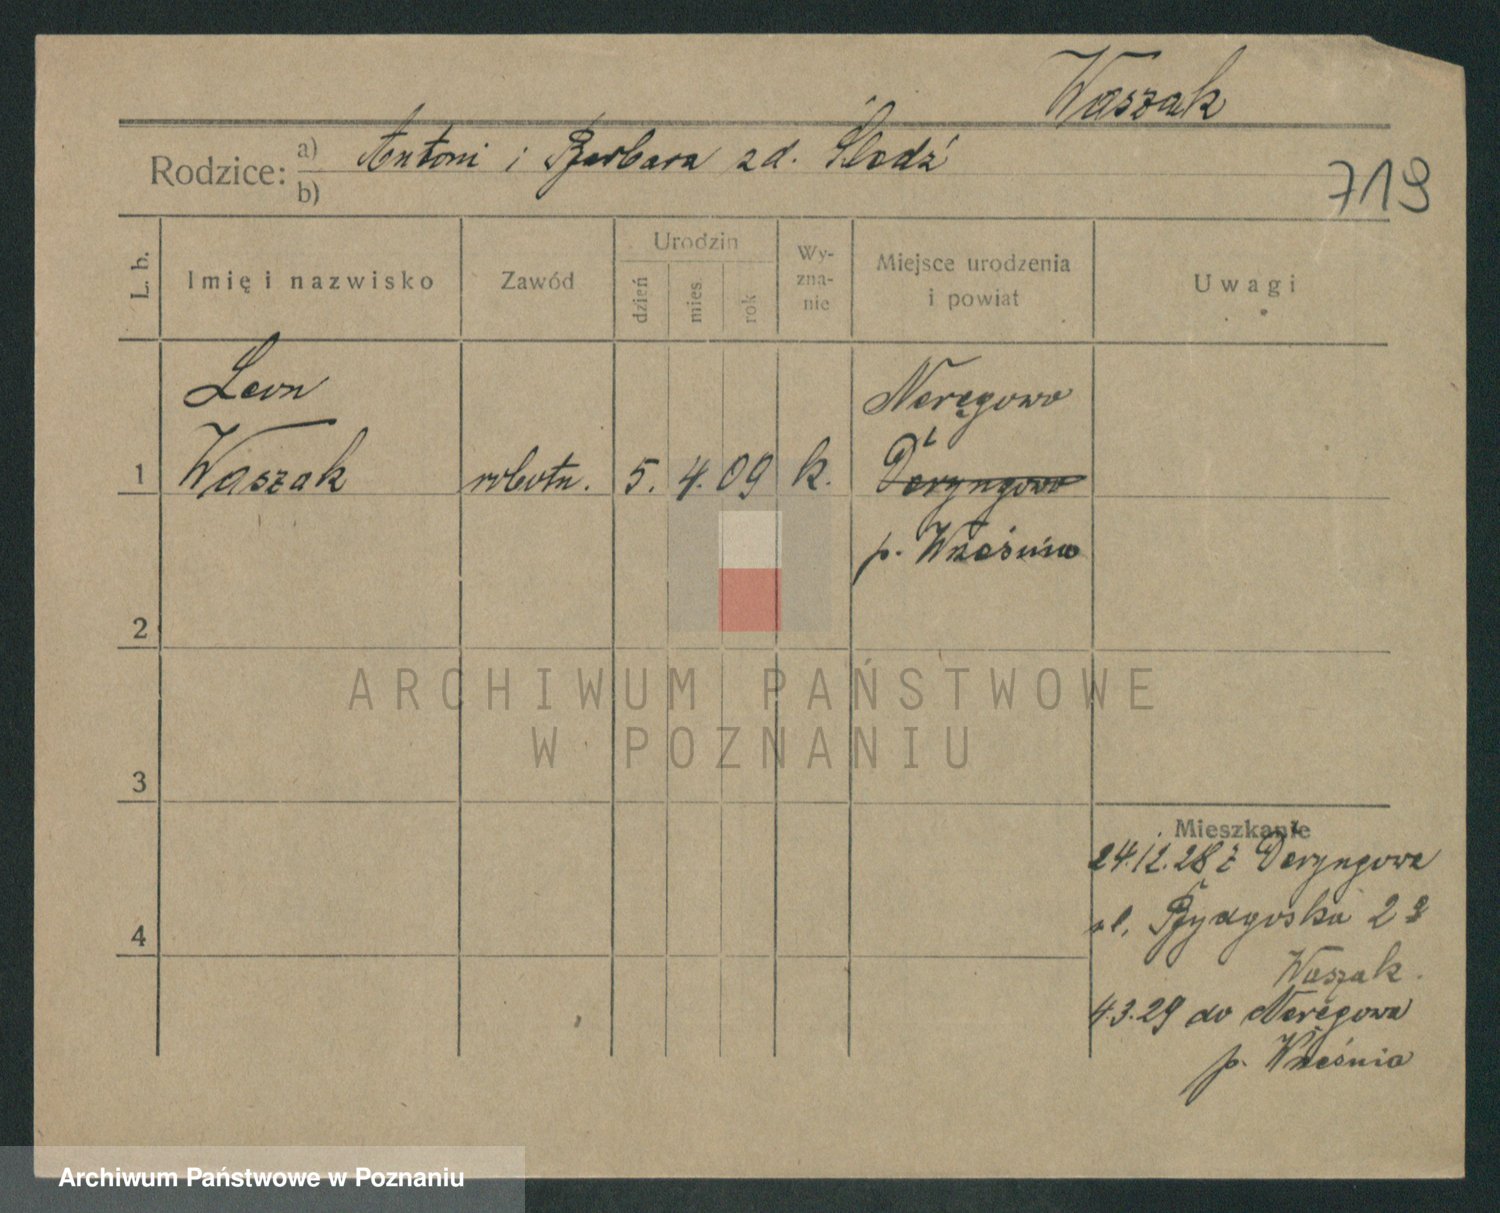 Waszak
Rodzice: a) Antoni i Barbara zd. Śledź
b)
719
L. b.
Imię i nazwisko
Zawód
Urodzin
dzień
mies.
rok
Wy-
zna-
nie
Miejsce urodzenia
i powiat
Uwagi
Leon
Waszak
1
robotn.
5. 4. 09
k.
Neręgowo
Deryngowo
p. Września
2
3
4
Mieszkanie
24.12.28 z Deryngowa
ul. Bydgoska 2
Waszak.
4.3.29 do Neręgowa
p. Września
ARCHIWUM PAŃSTWOWE
W POZNANIU
Archiwum Państwowe w Poznaniu